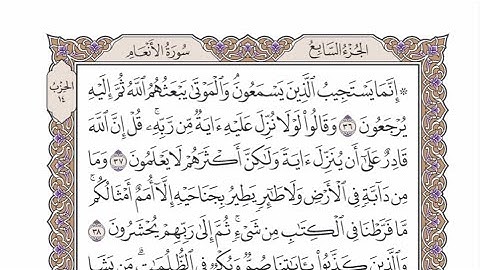 الجُزْءُ السَّابِعُ
سُورَةُ الأَنْعَامِ
الحِزْبُ
١٤
۞ إِنَّمَا يَسْتَجِيبُ ٱلَّذِينَ يَسْمَعُونَۘ وَٱلْمَوْتَىٰ يَبْعَثُهُمُ ٱللَّهُ ثُمَّ إِلَيْهِ
يُرْجَعُونَ ٣٦ وَقَالُوا۟ لَوْلَا نُزِّلَ عَلَيْهِ ءَايَةٌ مِّن رَّبِّهِۦۚ قُلْ إِنَّ ٱللَّهَ
قَادِرٌ عَلَىٰٓ أَن يُنَزِّلَ ءَايَةً وَلَٰكِنَّ أَكْثَرَهُمْ لَا يَعْلَمُونَ ٣٧ وَمَا
مِن دَآبَّةٍ فِى ٱلْأَرْضِ وَلَا طَٰٓئِرٍ يَطِيرُ بِجَنَاحَيْهِ إِلَّآ أُمَمٌ أَمْثَالُكُمۚ
مَّا فَرَّطْنَا فِى ٱلْكِتَٰبِ مِن شَىْءٍۚ ثُمَّ إِلَىٰ رَبِّهِمْ يُحْشَرُونَ ٣٨
وَٱلَّذِينَ كَذَّبُوا۟ بِـَٔايَٰتِنَا صُمٌّ وَبُكْمٌ فِى ٱلظُّلُمَٰتِۗ مَن يَشَإِ